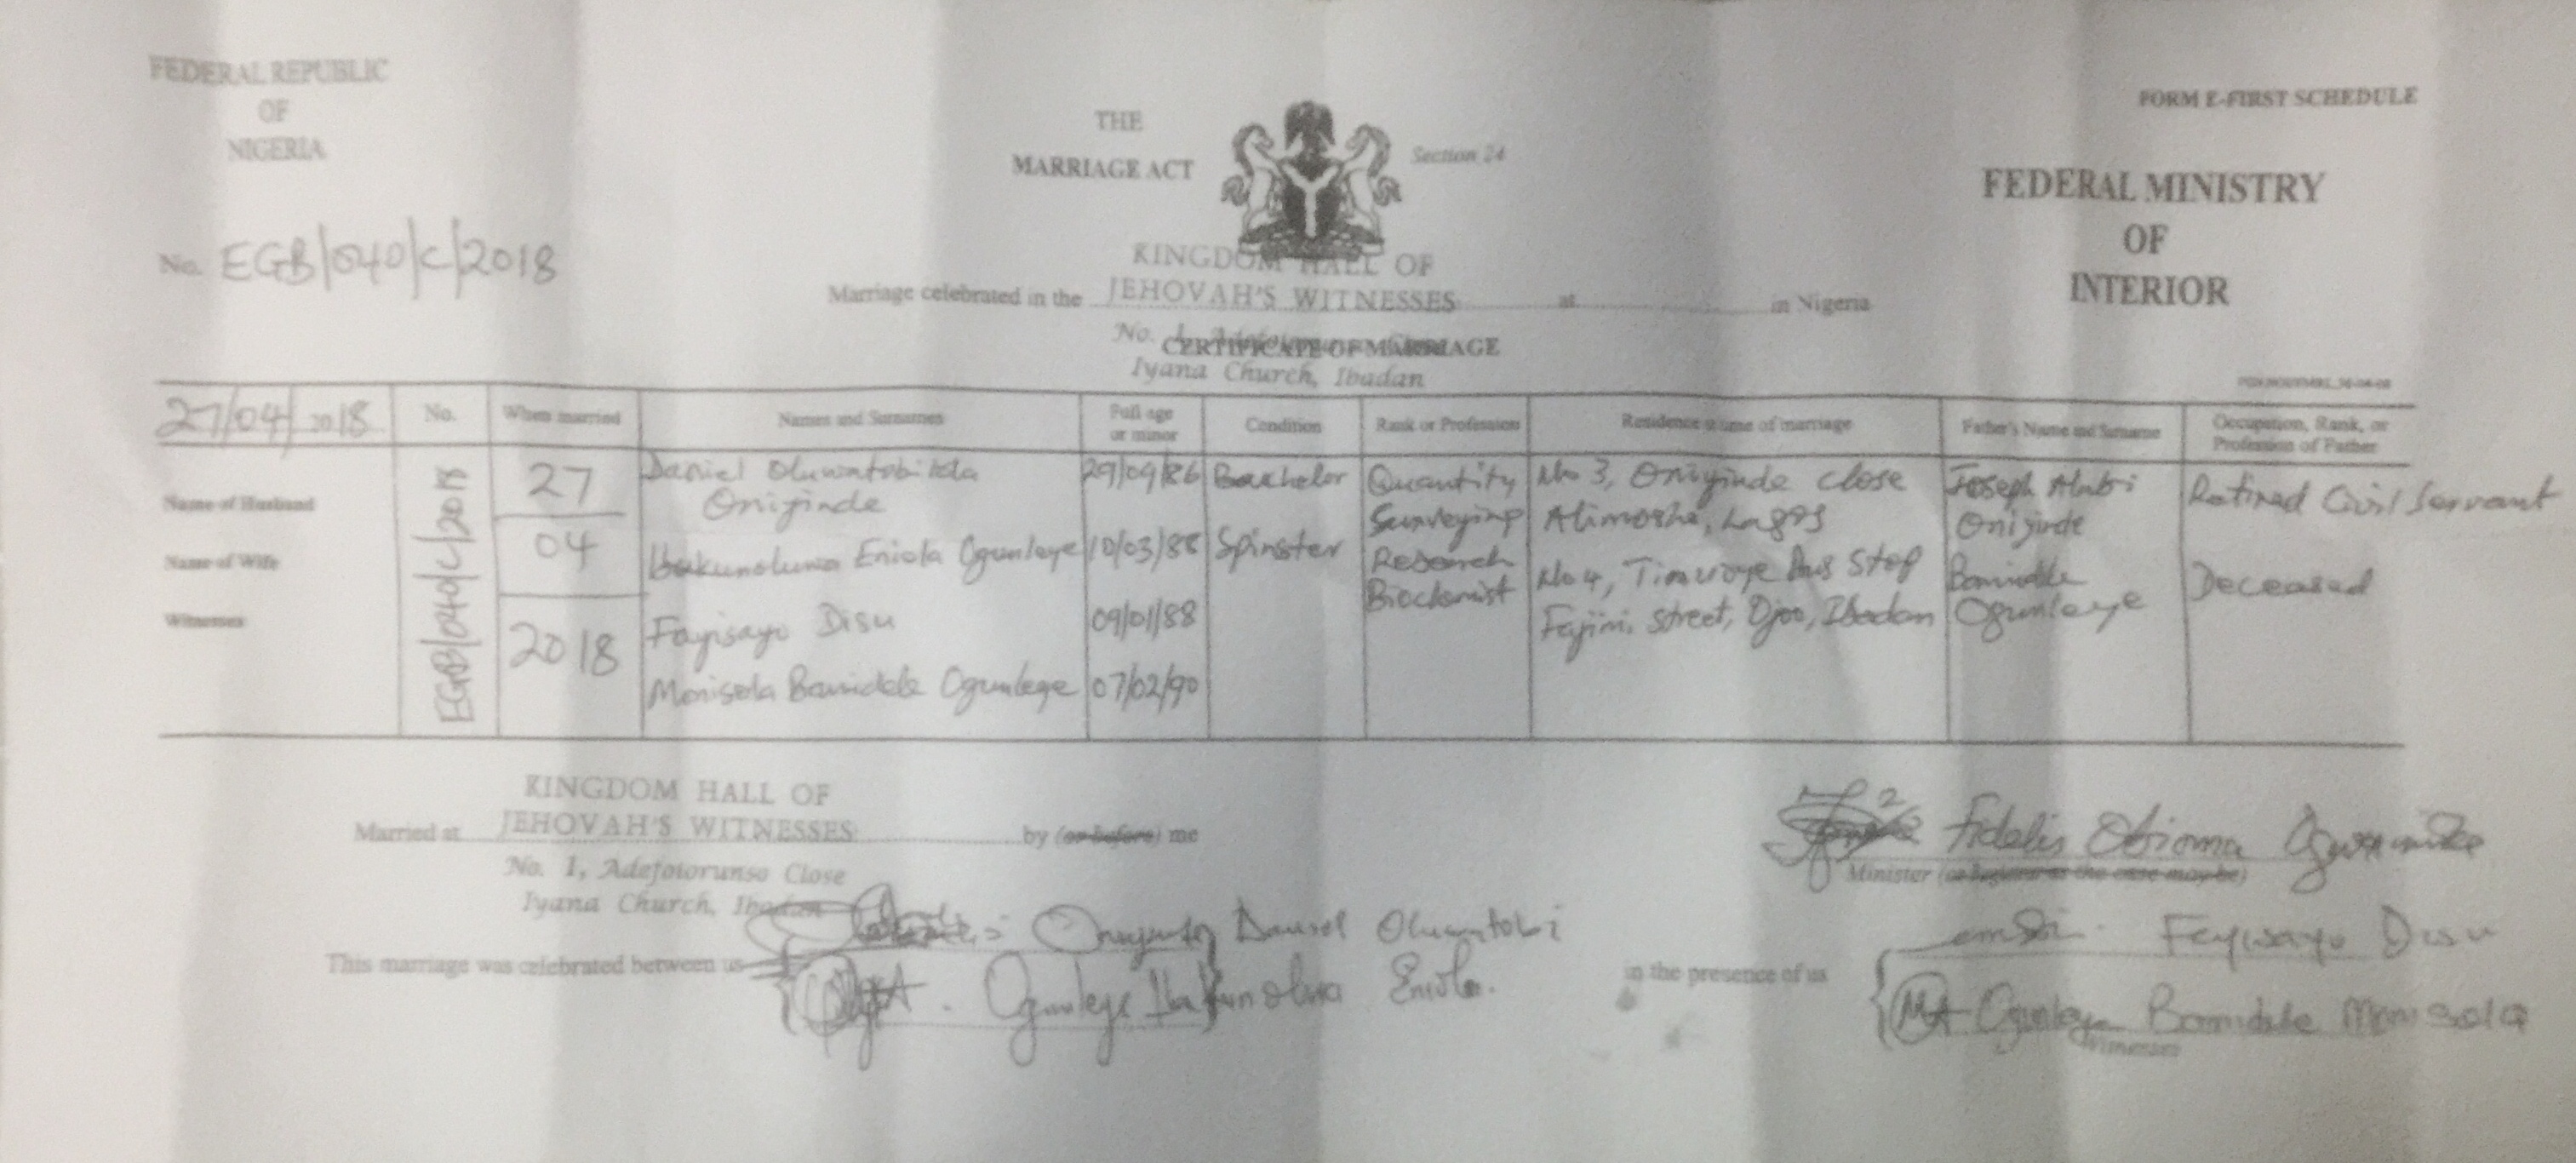 FEDERAL REPUBLIC
OF
NIGERIA
FORM E-FIRST SCHEDULE
THE
MARRIAGE ACT
Section 24
FEDERAL MINISTRY
OF
INTERIOR
No. EGB/040/C/2018
KINGDOM HALL OF
Marriage celebrated in the JEHOVAH'S WITNESSES at in Nigeria
No. 1,
CERTIFICATE OF MARRIAGE
Iyana Church, Ibadan
27/04/ 2018 No. When married Names and Surnames Full age or minor Condition Rank or Profession Residence time of marriage Father's Name and Surname Occupation, Rank, or Profession of Father
EGB/040/C/2018
27
04
2018
Name of Husband Daniel Oluwatobiloba Onijinde 29/09/86 Bachelor Quantity Surveying No 3, Onijinde close Alimosho, Lagos Joseph Alabi Onijinde Retired Civil Servant
Name of Wife Ibukunoluwa Eniola Ogunleye 10/03/88 Spinster Research Biochemist No 4, Bus Stop street, Ojoo, Ibadan Bamidele Ogunleye Deceased
Witnesses Disu 09/01/88
Monisola Bamidele Ogunleye 07/02/90
KINGDOM HALL OF
Married at JEHOVAH'S WITNESSES by (or before) me
No. 1, Adefotorunso Close
Iyana Church, Ibadan
Fidelis Obioma
Minister (or Registrar as the case may be)
Daniel Oluwatobi
This marriage was celebrated between us
Ogunleye Ibukunoluwa Eniola.
in the presence of us
Feyisayo Disu
Ogunleye Bamidele Monisola
Witnesses